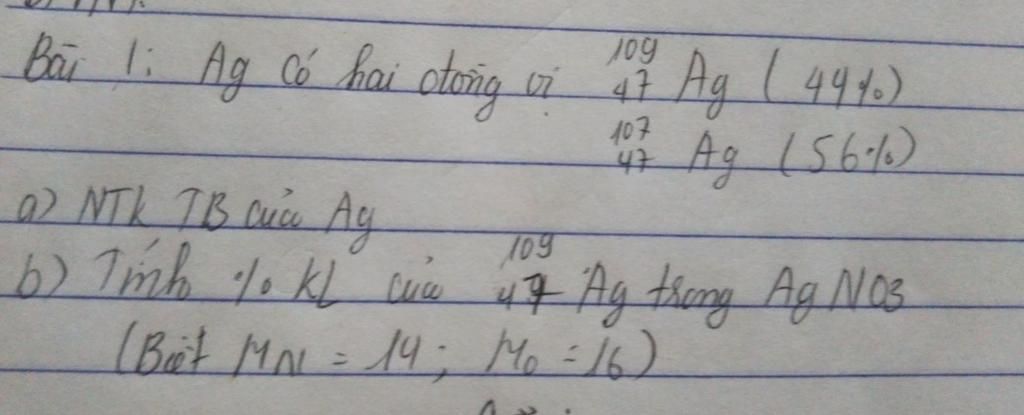 Bài 1: Ag có hai đồng vị ¹⁰⁹₄₇Ag (44%)
¹⁰⁷₄₇Ag (56%)
a) NTK TB của Ag
b) Tính % KL của ¹⁰⁹₄₇Ag trong AgNO3
(Biết MN = 14; MO = 16)